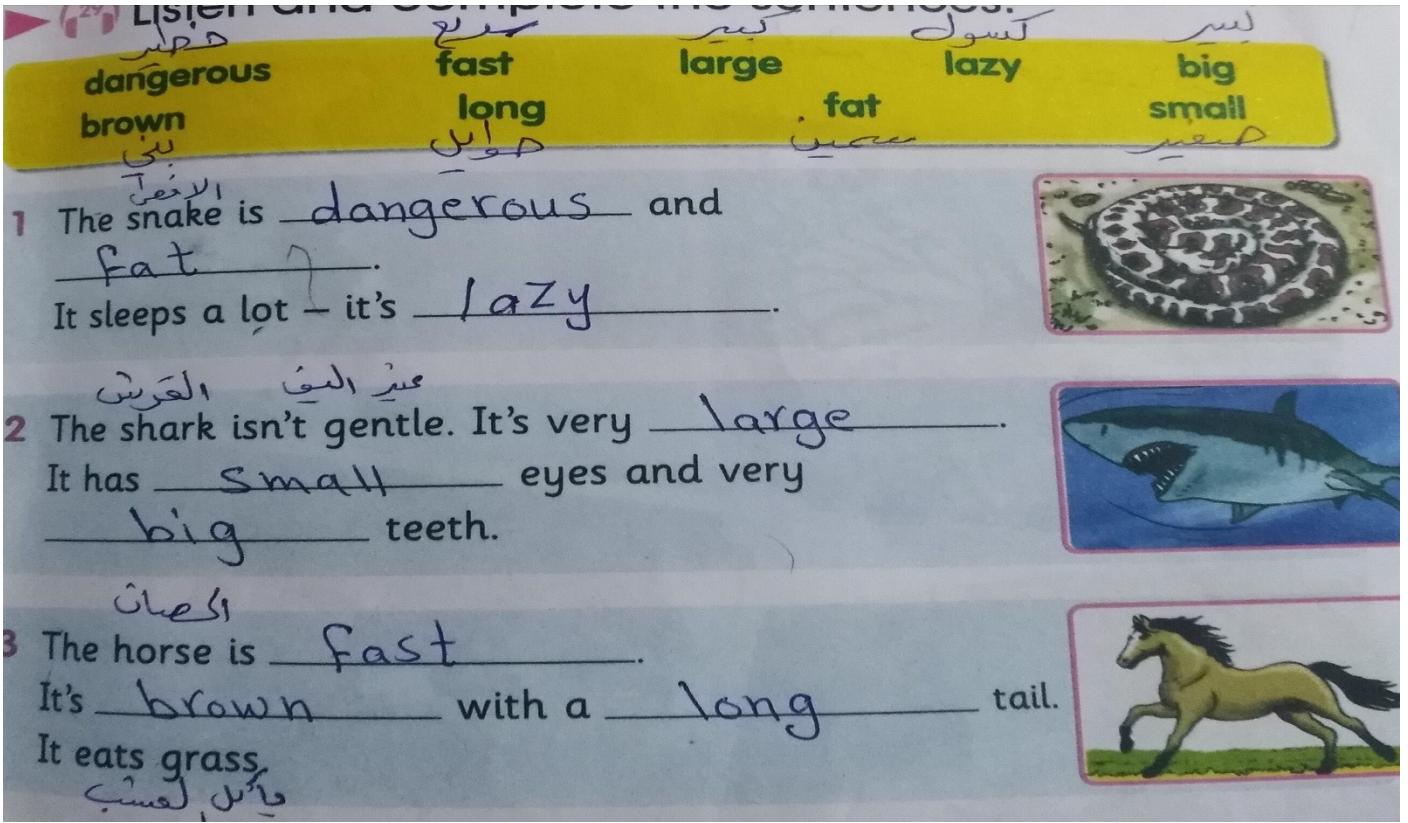 29 Listen and complete the sentences.
خطير سريع كبير كسول كبير
dangerous fast large lazy big
brown long fat small
بني طويل سمين صغير
الافعى
1 The snake is dangerous and
fat.
It sleeps a lot – it's lazy.
القرش غير اليف
2 The shark isn't gentle. It's very large.
It has small eyes and very
big teeth.
الحصان
3 The horse is fast.
It's brown with a long tail.
It eats grass.
يأكل العشب